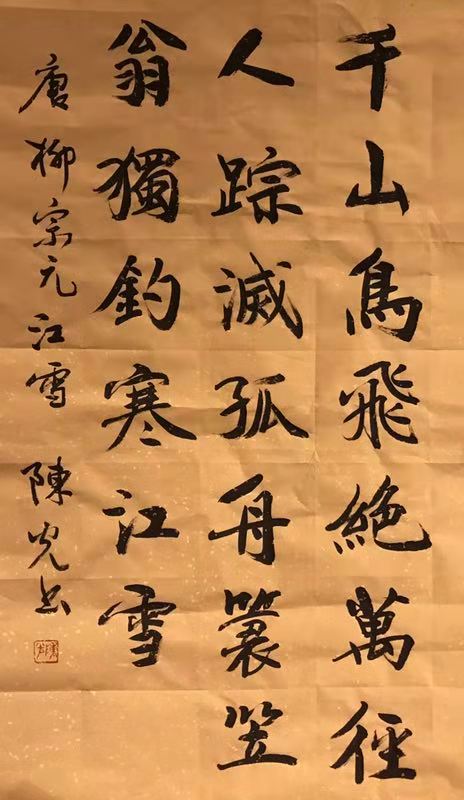 千山鳥飛絕萬徑
人踪滅孤舟簑笠
翁獨釣寒江雪
唐柳宗元江雪 陳光书